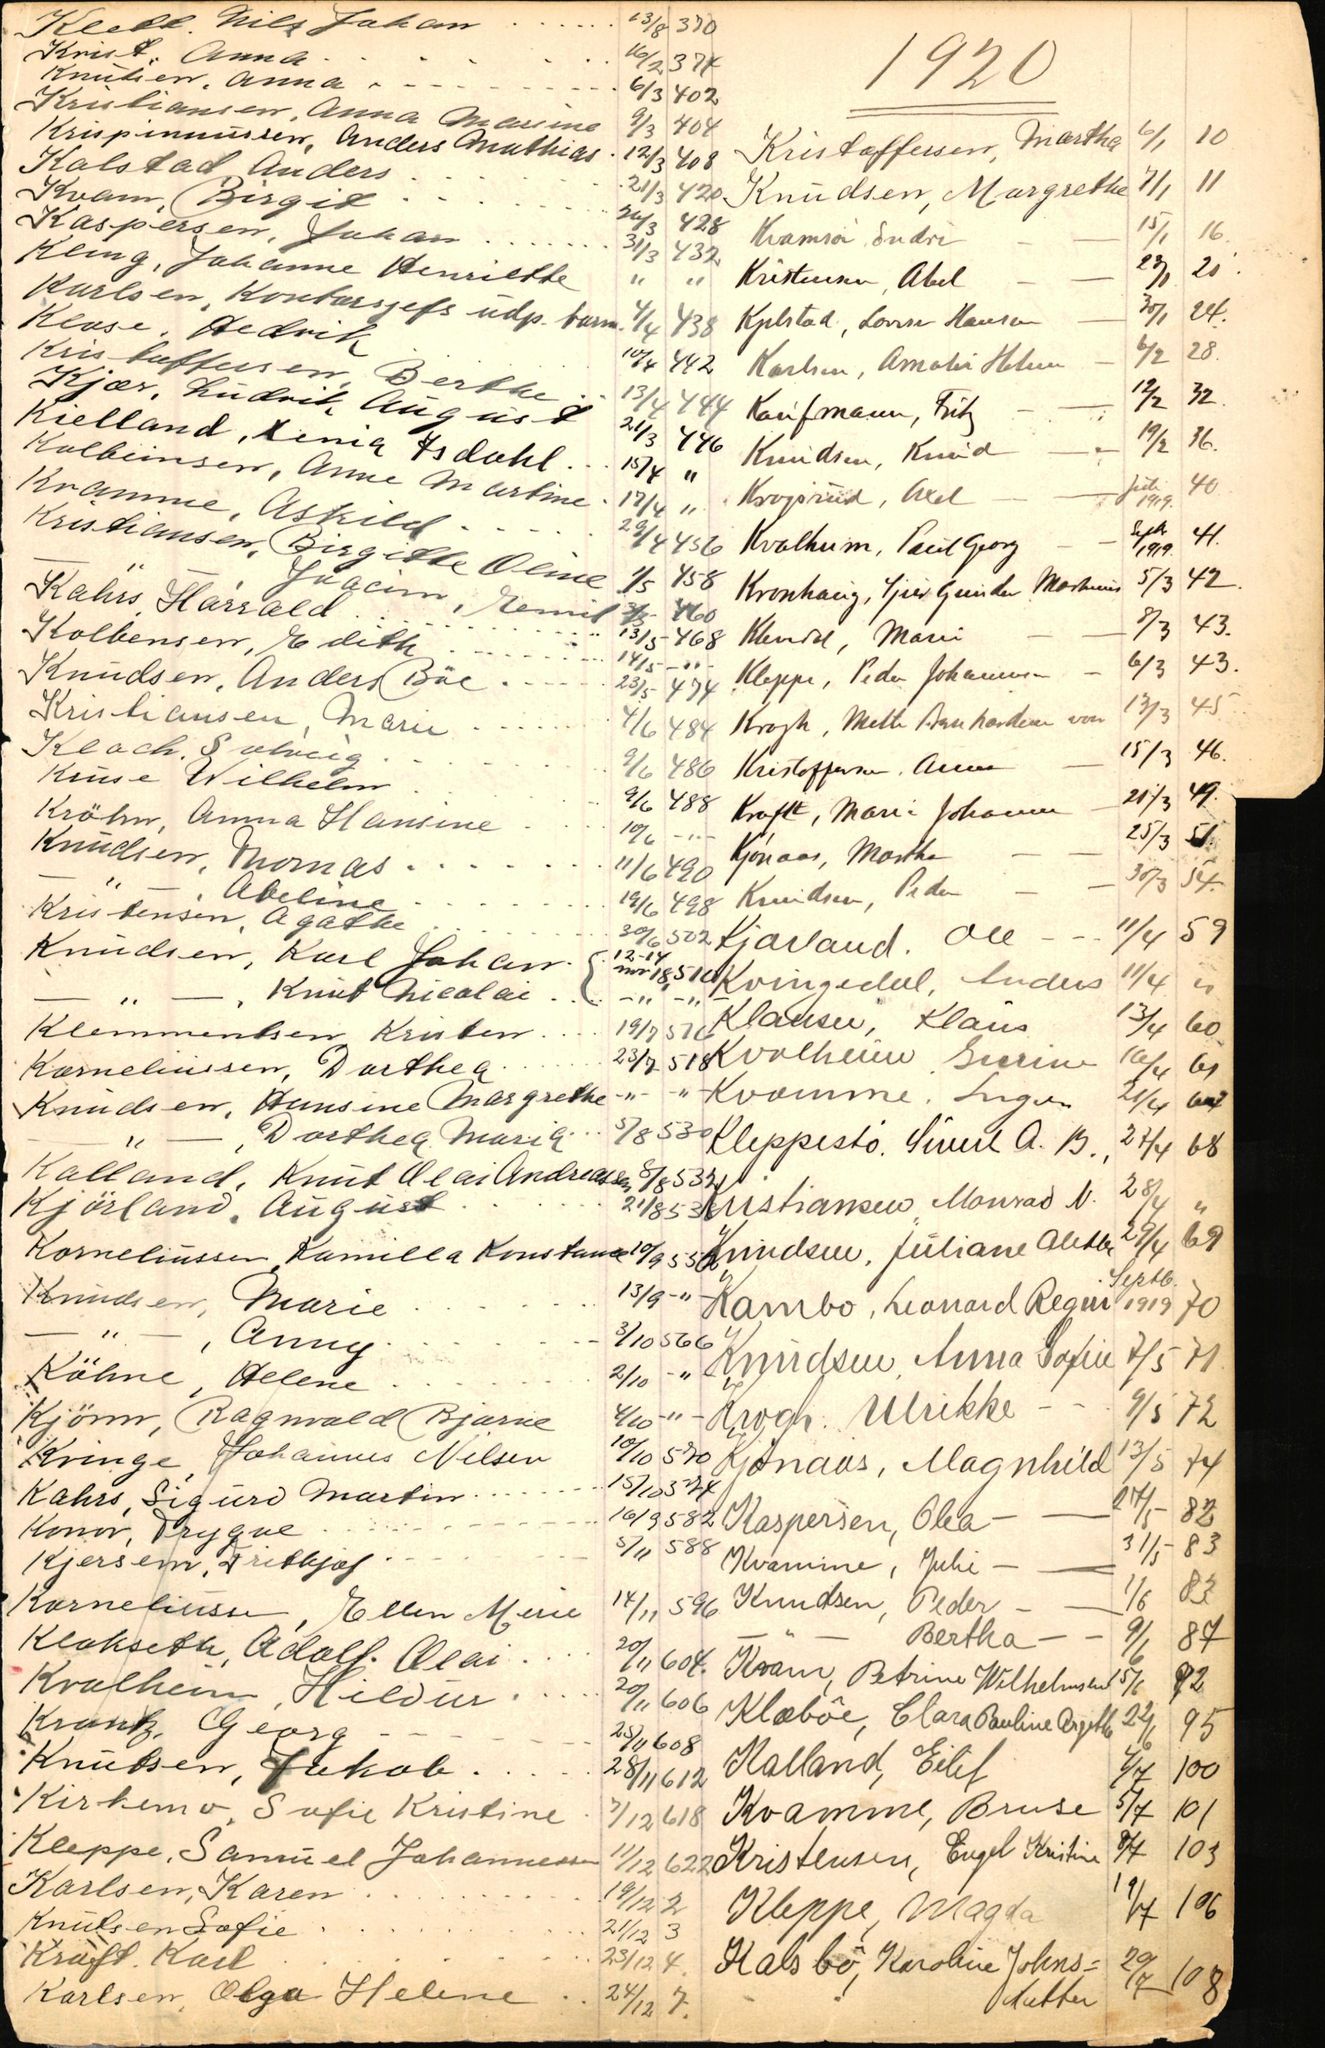 Klett. Nils Johan 23/8 370
Krist. Anna 16/2 374
Knutsen, Anna 6/3 402
Kristiansen, Anna Marine 9/3 404
Krispinussen, Anders Mathias 12/3 408
Kalstad Anders 21/3 420
Kvam, Birgit 26/3 428
Kaspersen, Johan 31/3 432
Kling, Johanne Henriette " "
Karlsen, Kontorsjefs udp. barn 4/4 438
Klose. Hedvik 10/4 442
Kristoffersen, Berthe 13/4 444
Kjær, Ludvik August 21/3 446
Kielland, Xenia Isdahl 15/4 "
Kolbeinsen, Anne Martine 17/4 "
Kramme, Askild 29/4 456
Kristiansen, Birgitte Oline 1/5 458
Joacim, Emil 3/5 460
Kahrs, Harald 13/5 468
Kolbensen, Edith 14/5 - " -
Knudsen, Anders Böe 23/5 474
Kristiansen, Marie 4/6 484
Kloch. Solveig 9/6 486
Kruse Wilhelm 9/6 488
Kröhn, Anna Hansine 10/6 - " -
Knudsen, Thomas 11/6 490
— " —, Abeline 19/6 498
Kristensen, Agathe 30/6 502
Knudsen, Karl Johan 12-14
— " —, Knut Nicolai - " - - " -
Klemmentsen, Kristen 19/7 516
Korneliussen, Dorthea 23/7 518
Knudsen, Hansine Margrethe - " - - "
— " —, Dorthea Maria 5/8 530
Kalland, Knut Olai Andreassen 8/8 532
Kjörland, August 21/8 53
Korneliussen, Kamilla Konstance 10/9 55
Knudsen, Marie 13/9 - " -
— " —, Anny 3/10 566
Köhne, Helene 2/10 - " -
Kjönn, Ragnvald Bjarne 4/10 - " -
Kringe, Johannes Nilsen 10/10 570
Kahrs, Sigurd Martin 15/10 574
Konov, Trygve 16/9 582
Kjersem, Frithjof 5/11 588
Korneliussen, Ellen Merie 14/11 596
Klokseth, Adolf. Olai 20/11 604.
Kvalheim, Hildur 20/11 606
Krantz, Georg 25/11 608
Knutsen, Jakob 28/11 612
Kirkemo, Sofie Kristine 7/12 618
Kleppe, Samuel Johannessen 11/12 622
Karlsen, Karen 19/12 2
Knutsen Sofie 21/12 3
Kraft. Karl 23/12 4.
Karlsen, Olga Helene 24/12 7.
1920
Kristoffersen, Martha 6/1 10
Knudsen, Margrethe 7/1 11
Kramsöi Endre 15/1 16.
Kristensen, Abel 23/1 20.
Kjelstad, Lovise Hanson 30/1 24.
Karlsen, Amalie Helene 6/2 28.
Kaufmann, Fritz 12/2 32.
Knudsen, Knud 19/2 36.
Krogsrud, Axel Juli 1919. 40
Kvalheim, Paul Georg Sept 1919. 41.
Kronhaug, Gunder Martinius 5/3 42.
Marie 8/3 43.
Kleppe, Peder Johannesen 6/3 43.
Krogh, Mette Bernhardine von 13/3 45
Kristoffersen. Anna 15/3 46.
Krafft, Marie Johanne 21/3 49.
Kjönaas, Martha 25/3 51.
Knudsen, Peder 30/3 54.
Kjarland. Ole 11/4 59
Kvingedal, Anders 11/4 "
Klausen, Klaus 13/4 60
Kvalheim Gurine 16/4 61
Kvamme. Inger 21/4
Kleppestö. Sivert A. B., 27/4 68
Kristiansen, Monrad N. 28/4 "
Knudsen, Juliane Alette 29/4 69
Kambo, Leonard Regin Septb. 1919 70
Knudsen, Anna Sofie 7/5 71.
Krogh. Ulrikke 9/5 72
Kjönaas, Magnhild 13/5 74
Kaspersen, Olea 27/5 82
Kvamme, Julie 31/5 83
Knudsen, Peder 1/6 83
— " — Bertha 9/6 87
Kvam, Petrine Wilhelmsen 15/6 92
Klæböe, Clara Pauline Birgitte 22/6 95
Kalland, Eilif 4/7 100
Kvamme, Bruse 5/7 101
Kristensen, Engel Kristine 8/7 103
Kleppe, Magda 19/7 106
Kalsbö, Karoline Johns=
datter 20/7 108